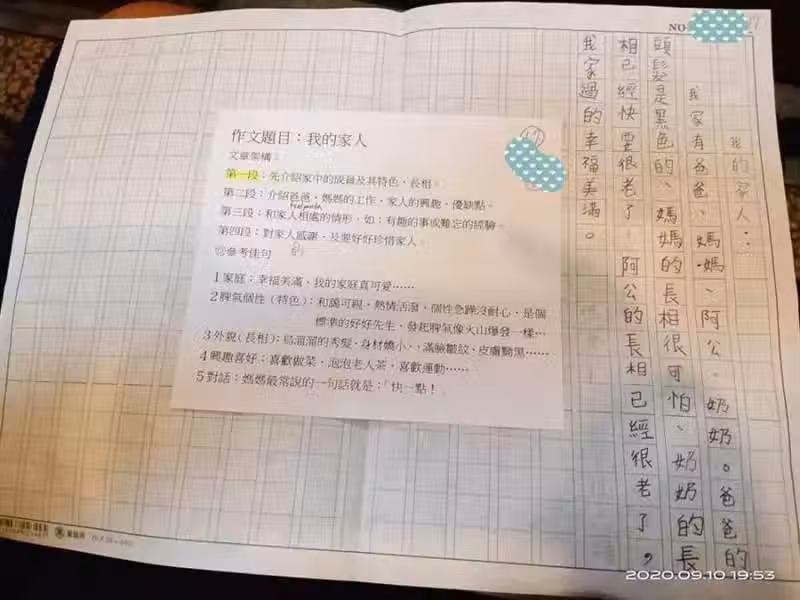 NO
我的家人:
我家有爸爸、媽媽、阿公。奶奶。爸爸的
頭髮是黑色的、媽媽的長相很可怕、奶奶的長
相已經快要很老了。阿公的長相已經很老了，
我家過的幸福美滿。
作文題目：我的家人
文章架構：
第一段：先介紹家中的成員及其特色、長相。
第二段：介紹爸爸、媽媽的工作、家人的興趣、優缺點。
第三段：和家人相處的情形，如：有趣的事或難忘的經驗。
第四段：對家人感謝，及要好好珍惜家人。
參考佳句
1 家庭：幸福美滿、我的家庭真可愛……
2 脾氣個性（特色）：和藹可親、熱情活潑、個性急躁沒耐心、是個
標準的好好先生、發起脾氣像火山爆發一樣…
3 外貌（長相）：烏溜溜的秀髮、身材嬌小、滿臉皺紋、皮膚黝黑……
4 興趣喜好：喜歡做菜、泡泡老人茶，喜歡運動……
5 對話：媽媽最常說的一句話就是：「快一點！
2020.09.10 19:53